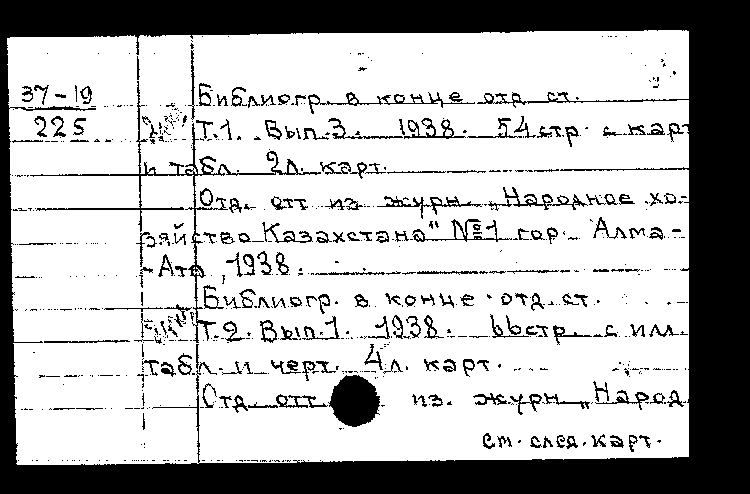 37-19
225
Библиогр. в конце отд ст.
Т.1. Вып.3. 1938. 54стр. с карт
и табл. 2л. карт.
Отд. отт из журн. „Народное хо-
зяйство Казахстана" №1 гор. Алма-
-Ата, 1938.
Библиогр. в конце отд. ст.
Т.2. Вып.1. 1938. 66стр. с илл.
табл. и черт. 4л. карт.
Отд. отт из. журн „Народ.
см. след. карт.